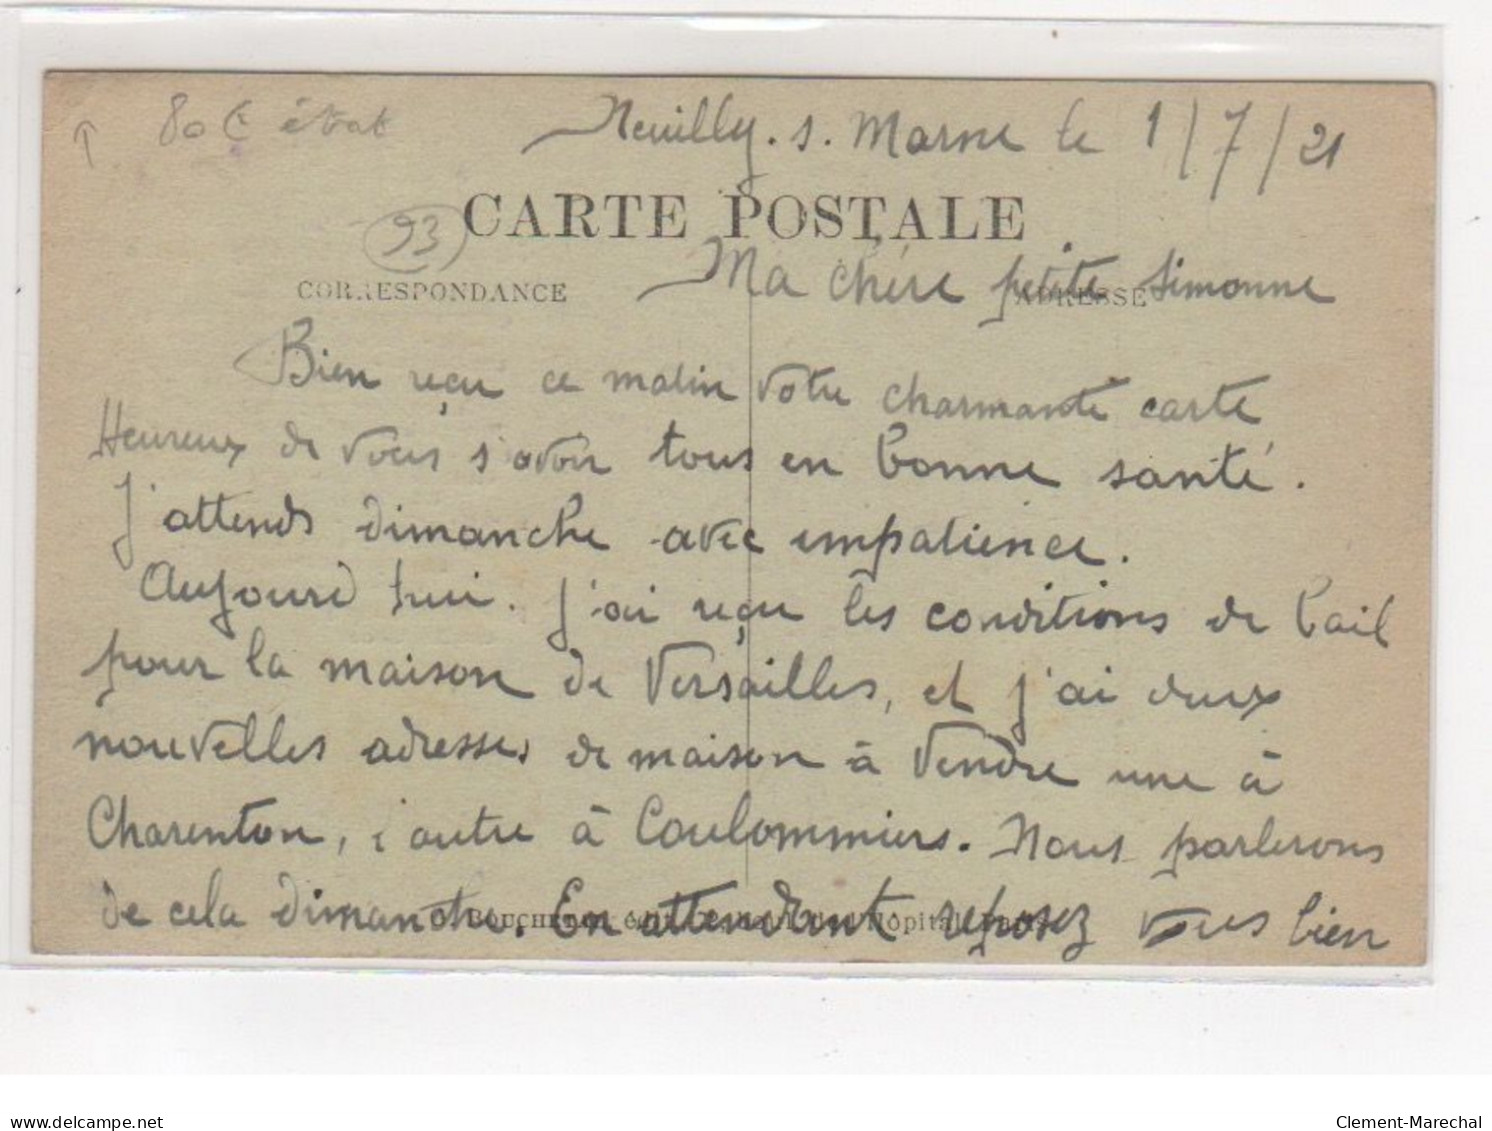 80 € état
Neuilly. s. Marne le 1/7/21
93
CARTE POSTALE
CORRESPONDANCE
ADRESSE
Ma chére petite Simonne
Bien reçu ce matin votre charmante carte
Heureux de vous savoir tous en bonne santé.
J'attends dimanche avec impatience.
Aujourd hui. j'ai reçu les conditions de bail
pour la maison de Versailles, et j'ai deux
nouvelles adresses de maison à vendre une à
Charenton, l'autre à Coulommiers. Nous parlerons
de cela dimanche. En attendant reposez vous bien
l'Hôpital, Paris
www.delcampe.net
Clement-Marechal